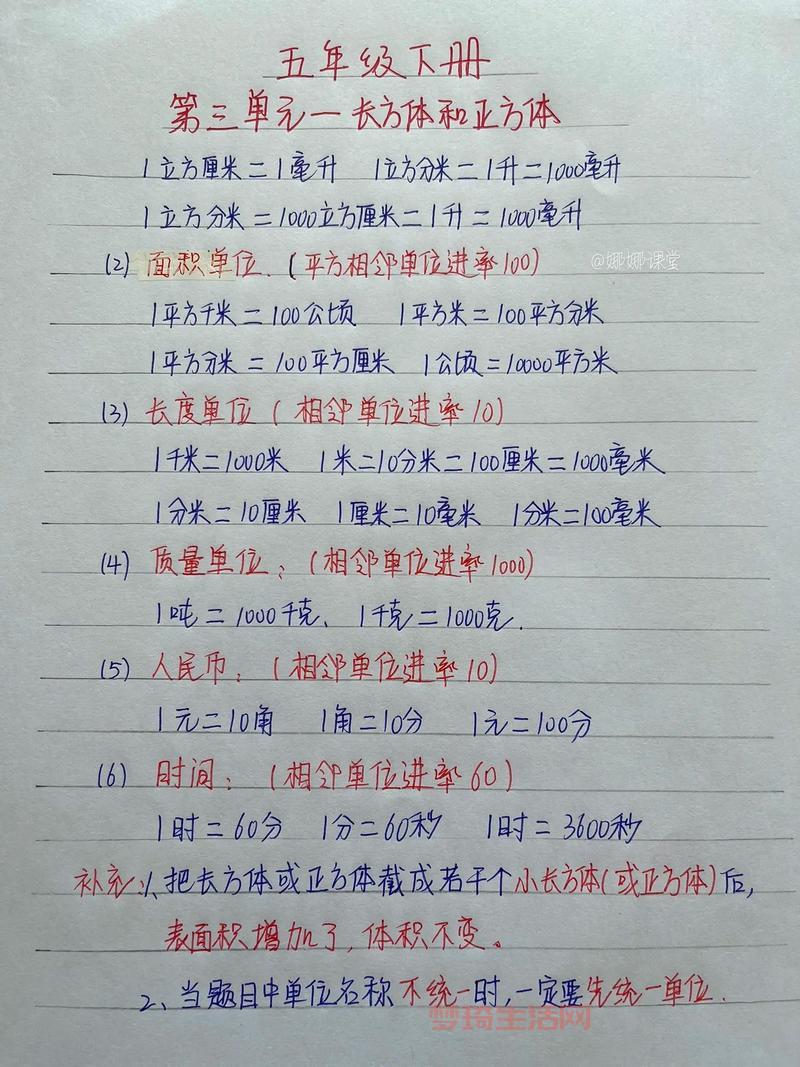 五年级下册
第三单元一长方体和正方体
1立方厘米=1毫升 1立方分米=1升=1000毫升
1立方分米=1000立方厘米=1升=1000毫升
(2) 面积单位.(平方相邻单位进率100)
@娜娜课堂
1平方千米=100公顷 1平方米=100平方分米
1平方分米=100平方厘米 1公顷=10000平方米
(3) 长度单位(相邻单位进率10)
1千米=1000米 1米=10分米=100厘米=1000毫米
1分米=10厘米 1厘米=10毫米 1分米=100毫米
(4) 质量单位:(相邻单位进率1000)
1吨=1000千克、1千克=1000克.
(5) 人民币:(相邻单位进率10)
1元=10角 1角=10分 1元=100分
(6) 时间:(相邻单位进率60)
1时=60分 1分=60秒 1时=3600秒
补充:1、把长方体或正方体截成若干个小长方体(或正方体)后,
表面积增加了,体积不变。
2、当题目中单位名称不统一时,一定要先统一单位.
梦琦生活网